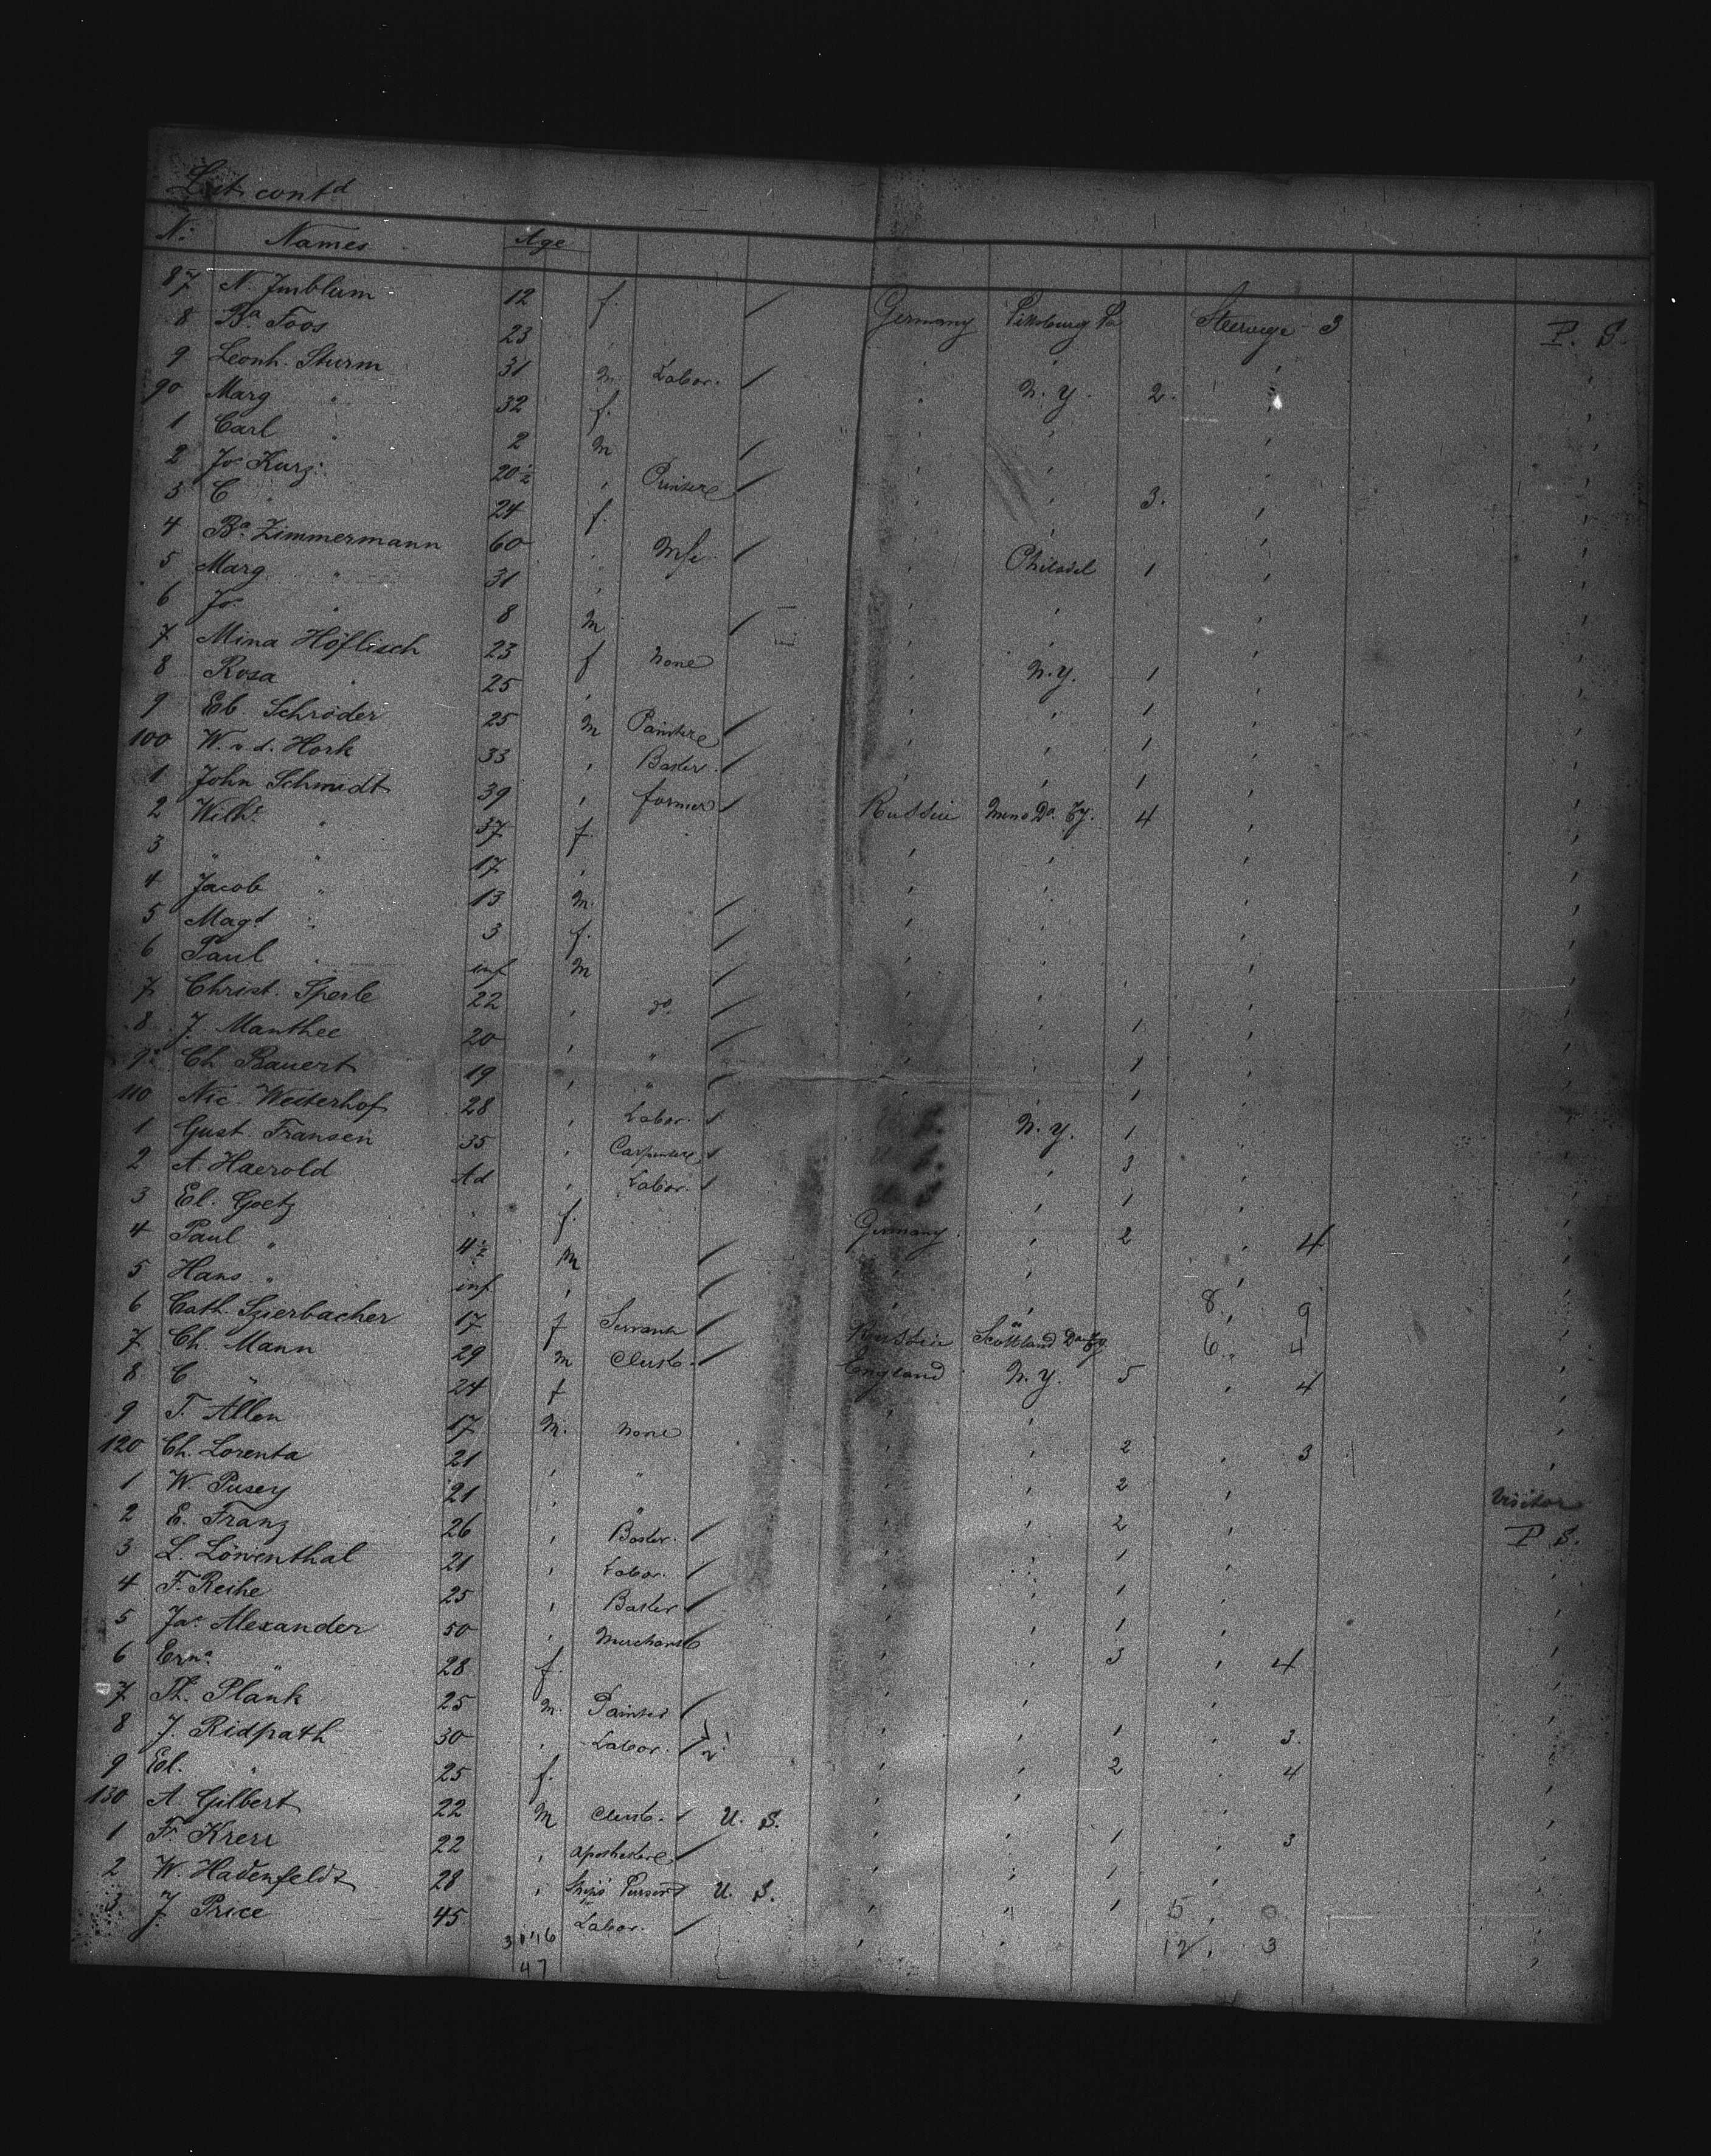 List contd
No Names Age
87 N. Imblum 12 f. / Germany Pittsburg Pa Steerage 3 P. S.
8 Ba Foos 23 "
9 Leonh. Sturm 31 m Labor. / " N. Y. 2.
90 Marg " 32 f.
1 Carl " 2 m /
2 Jos Kurz 20 1/2 " /
3 C " 24 f. 3.
4 Ba Zimmermann 60 " /
5 Marg " 31 " Philadel 1
6 Jos " 8 m /
7 Mina Höflisch 23 f None
8 Rosa " 25 " N. Y. 1
9 Eb. Schröder 25 m / 1
100 W. v. d. Hork 33 " Baker. / 1
1 John Schmidt 39 " farmer / 1
2 Wilhe " 37 f. Russia 4
3 " " 17 "
4 Jacob " 13 m. /
5 Magd " 3 f. /
6 Paul " inf m /
7 Christ. Sperle 22 " do. /
8 J. Manthee 20 " " / 1
9 Ch Bauert 19 " " / 1
110 Nic. Westerhof 28 " Labor. / 1
1 Gust. Fransen 35 " Carpenter / N. Y. 1
2 A. Haerold Ad " Labor. / 3
3 El. Goetz " f. 1
4 Paul " 4 1/2 m / Germany 2 4
5 Hans " inf " /
6 Cath. Szierbacher 17 f Servant / 8 9
7 Ch. Mann 29 m Clerk / Russia 6 4
8 C " 24 f England N. Y. 5 4
9 T. Allen 17 m. None
120 Ch. Lorenta 21 " " 2 3
1 W. Pusey 21 " " 2 Visitor
2 E. Franz 26 " Baker. / 2 P S.
3 L. Löwenthal 21 " Labor. / 1
4 F. Reihe 25 " Baker / 1
5 Jas Alexander 50 " Merchant 1
6 Erna " 28 f. 3 4
7 Th. Plank 25 m. Painter /
8 J. Ridpath 30 " Labor. / 1 3.
9 El. " 25 f. 2 4
130 A. Gilbert 22 m Clerk. / U. S.
1 Fr. Krerr 22 " / 1 3
2 W. Hadenfeldt 28 " Ships Purser / U. S. 1
3 J. Price 45 Labor. / 1 5 0
12 3
47